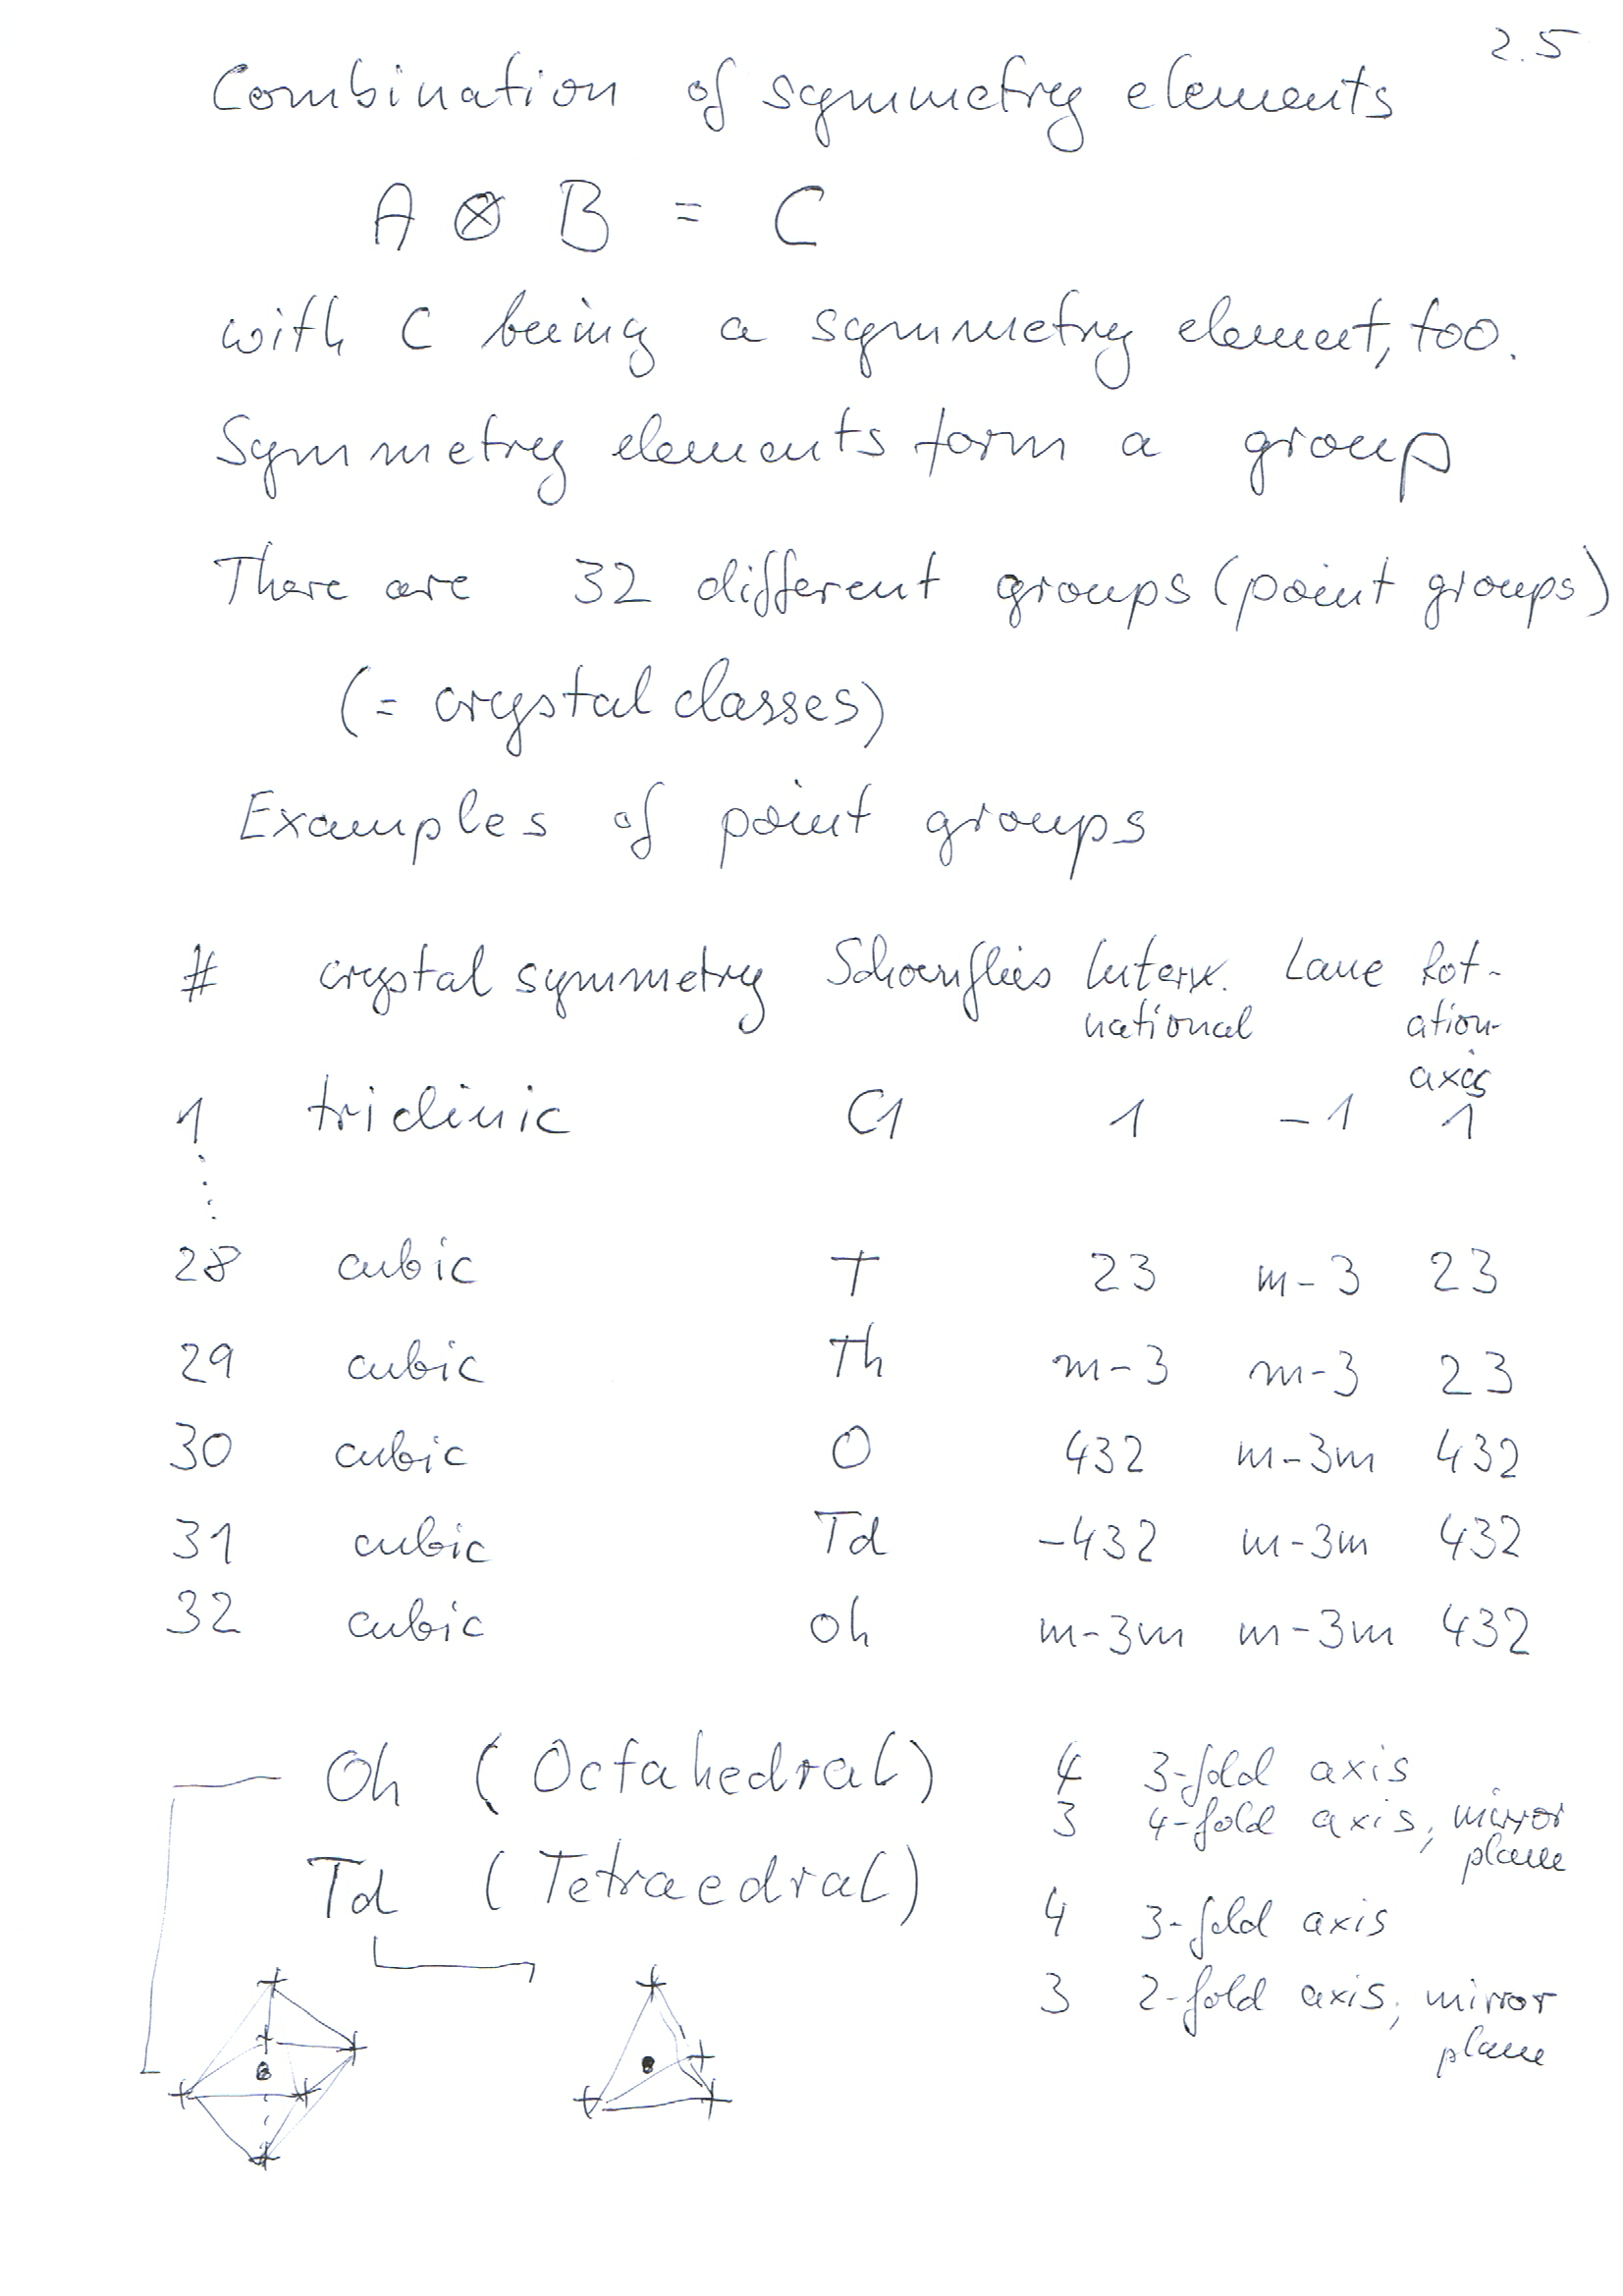 2.5
Combination of symmetry elements
A ⊗ B = C
with C beeing a symmetry element, too.
Symmetry elements form a group
There are 32 different groups (point groups)
(= crystal classes)
Examples of point groups
# crystal symmetry Schoenflies Intern. Laue Rot-
national ation-
axis
1 triclinic C1 1 -1 1
28 cubic T 23 m-3 23
29 cubic Th m-3 m-3 23
30 cubic O 432 m-3m 432
31 cubic Td -432 m-3m 432
32 cubic Oh m-3m m-3m 432
Oh (Octahedral) 4 3-fold axis
3 4-fold axis, mirror
plane
Td (Tetraedral) 4 3-fold axis
3 2-fold axis, mirror
plane